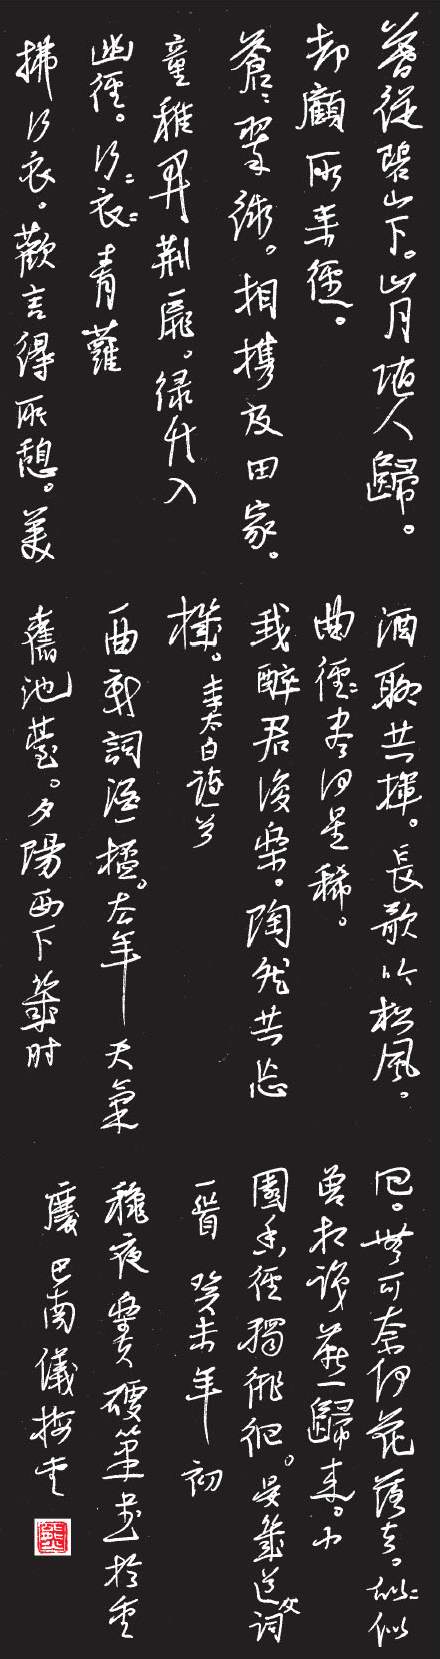 暮從碧山下。山月随人歸。
却顧所来徑。
蒼〻翠微。相攜及田家。
童稚開荆扉。緑竹入
幽徑。行〻衣〻青蘿
拂行衣。歡言得所憩。美
酒聊共揮。長歌吟松風。
曲徑〻盡河星稀。
我醉君復樂。陶然共忘
機。李太白詩一首
一曲新詞酒一杯。去年天氣
舊池臺。夕陽西下幾時
回。無可奈何花落去。似〻似
曾相識燕歸来。小
園香徑獨徘徊。晏幾道父詞
一首 癸未年初
穐夜硬筆書於重
慶巴南儀梅